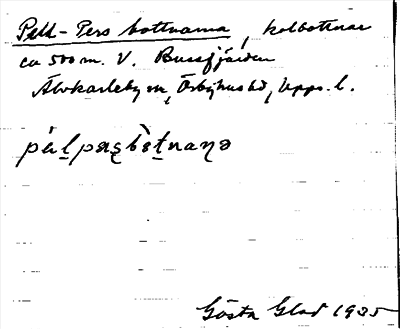 Pell-Pers bottnarna, kolbottnar
ca 500 m. V. Bussfjärden
Älvkarleby sn, Örbyhus hd, Upps. l.
Gösta Glad 1935